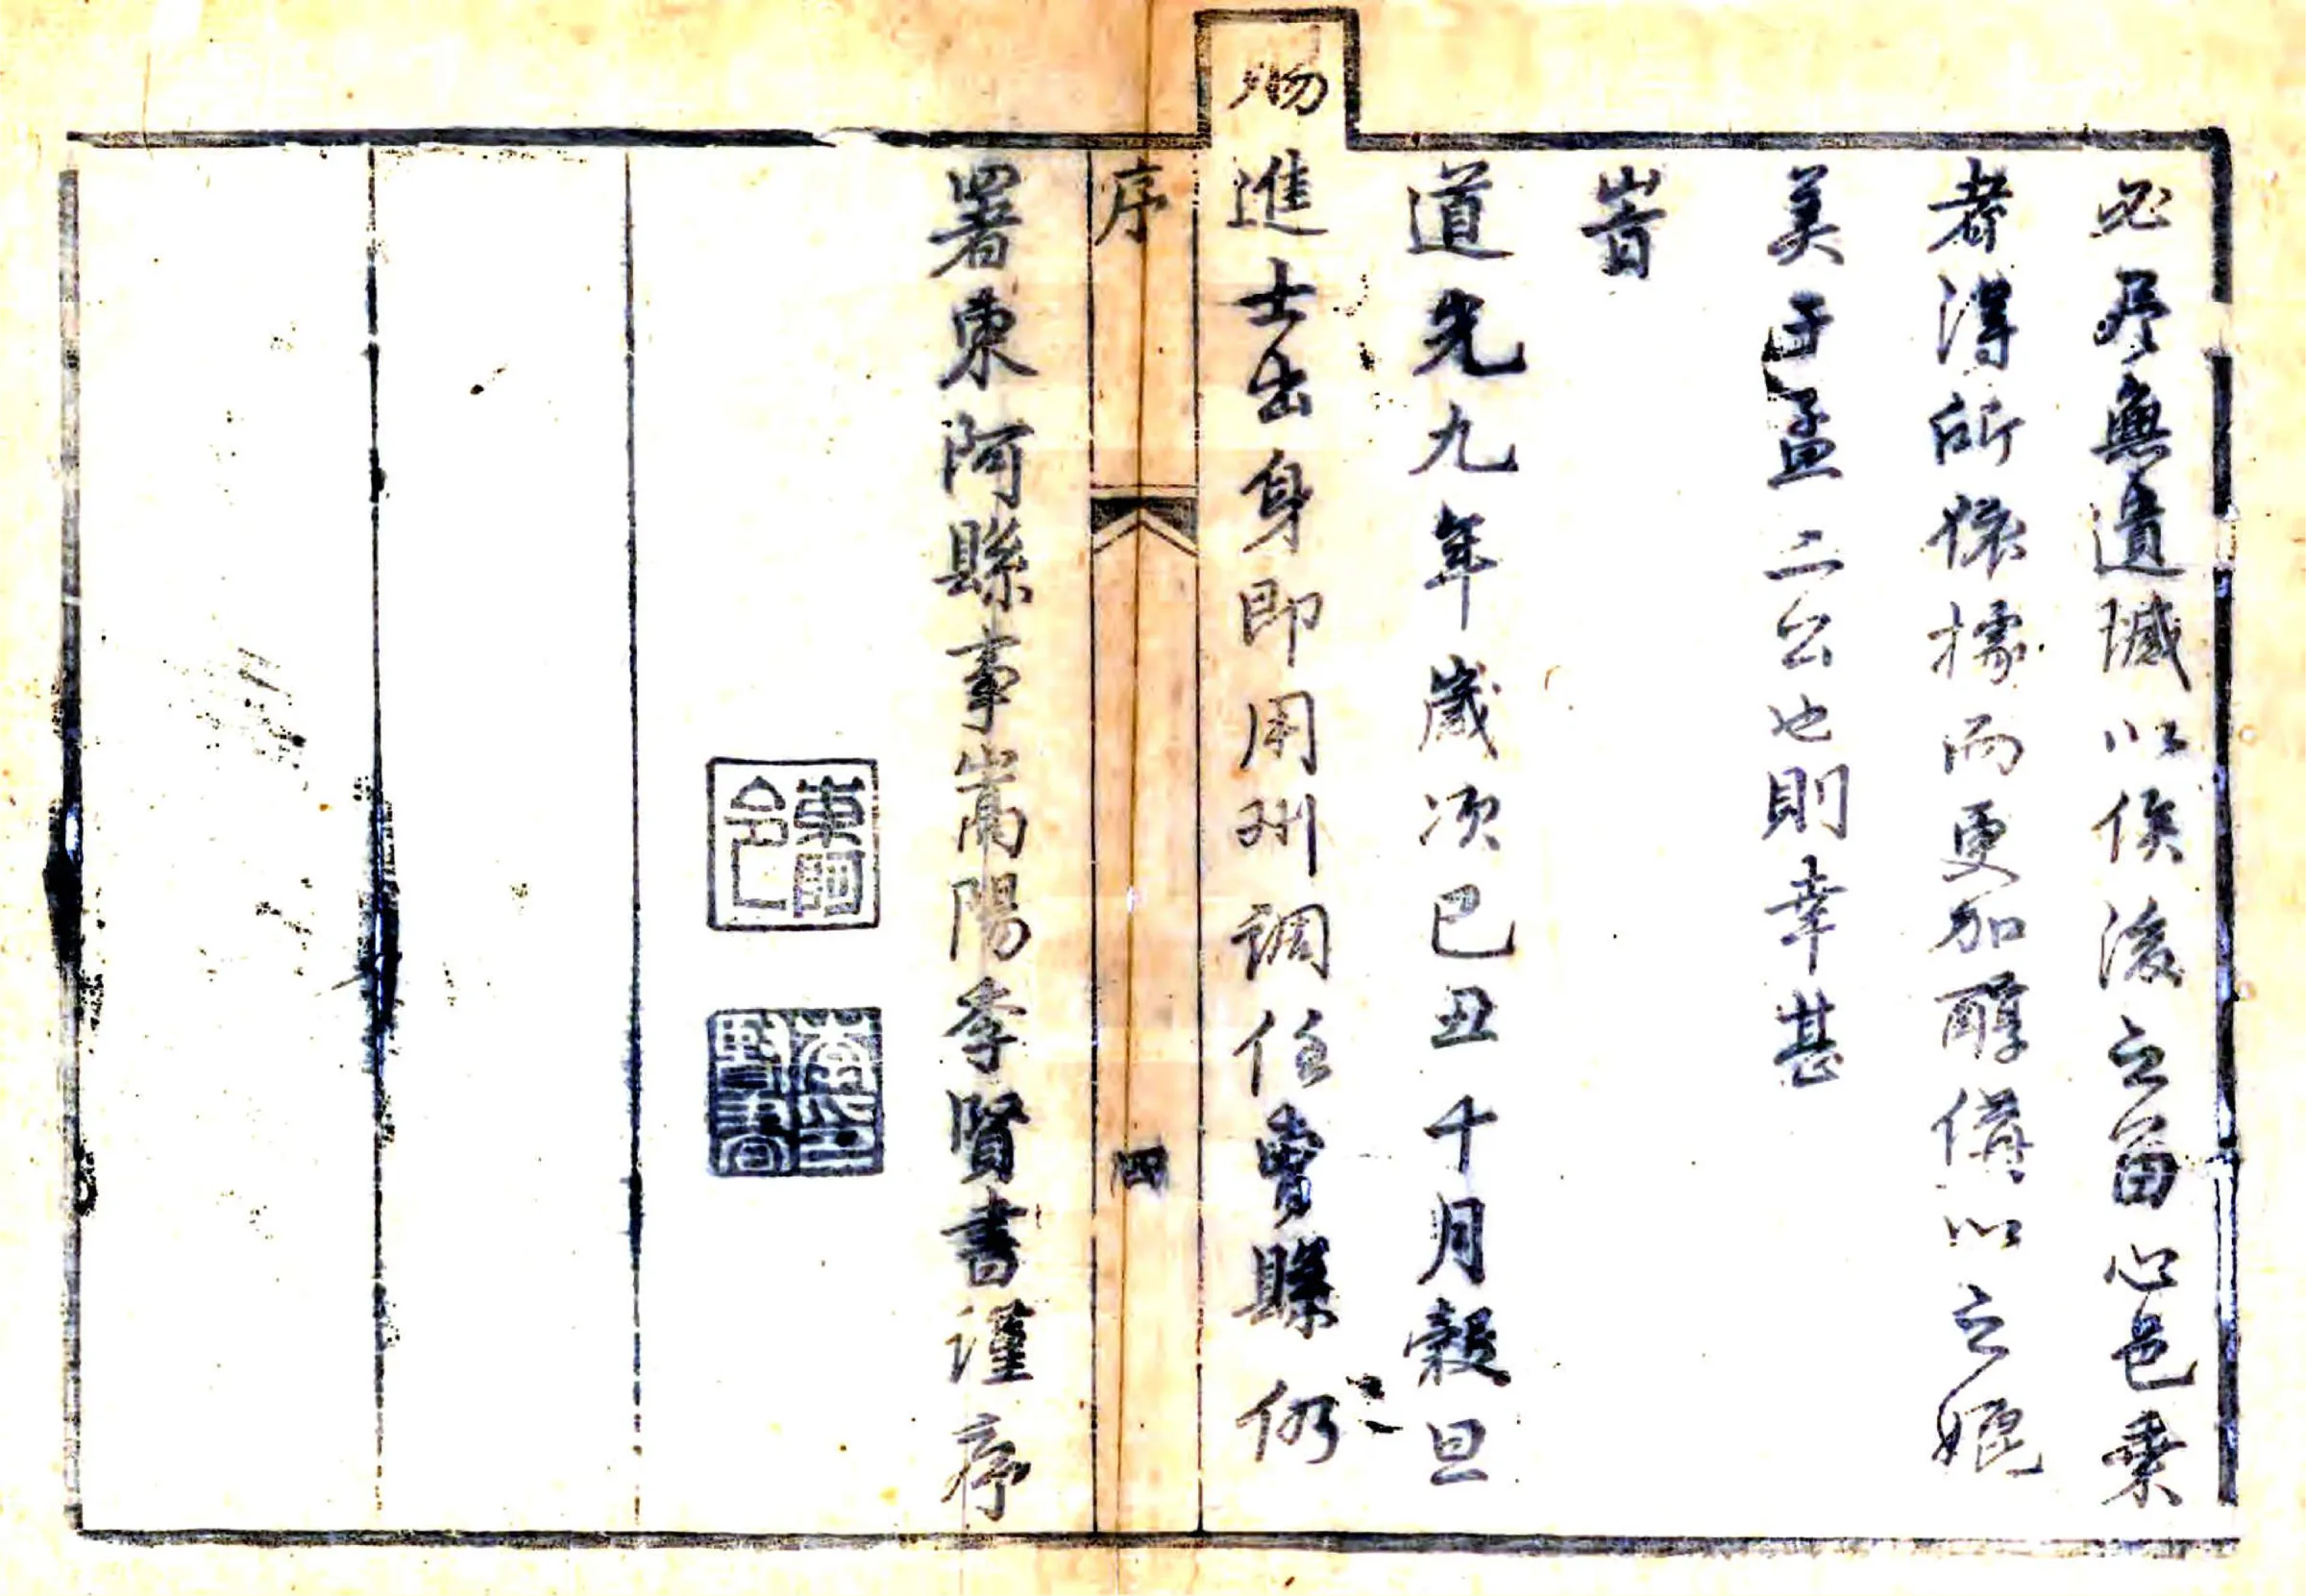 必尽無遺憾以俟後之留心邑乘
者得所依據而更加醇備以之媲
美于孟二公也則幸甚
旹
道光九年歲次己丑十月穀旦
賜進士出身即用州調任費縣仍
序 四
署東阿縣事嵩陽李賢書謹序
東阿令
李印賢書